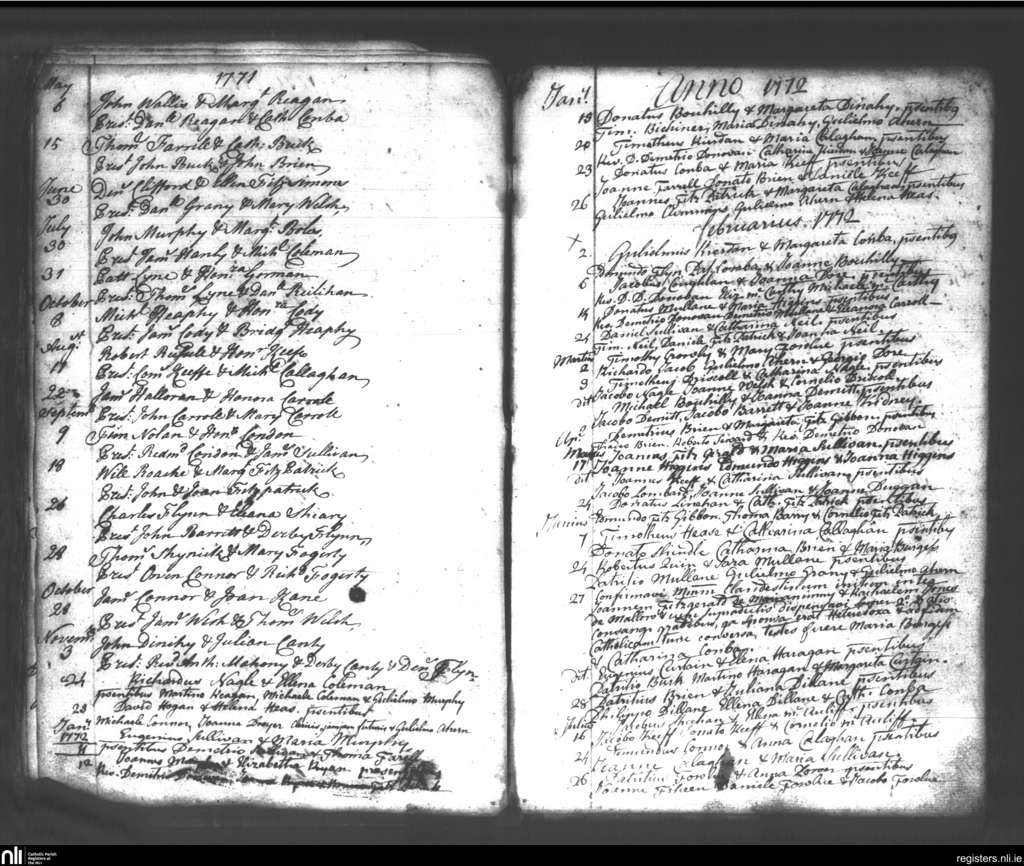 May 1771
6 John Wallis & Margt Reagan
Prest Danl Reagan & Cath: Conba
15 Thoms Farrile & Cath: Burk
Prest John Burk & John Brien
June Denis Clifford & Ellen Fitzsimons
30 Prest Danl Grany & Mary Welsh
July John Murphy & Margt Bolas
30 Prest Jams Hanly & Michl Coleman
31 Patt Lyne & Honra Gorman
Prest Thoms Lyne & Danl Reilihan
October Michl Heaphy & Honra Cody
8 Prest Jams Cody & Bridgt Heaphy
Augst Robert & Honr Keefe
17 Prest Corns Keeffe & Michl Callaghan
22 Jams Halloran & Honora Carrole
Septembr Prest John Carrole & Mary Carrole
9 Tim Nolan & Honr Condon
Prest Redmd Condon & Jams Sullivan
18 Will Roache & Margt Fitz Patrick
Prest John & Joan Fitzpatrick
26 Charles Flynn & Shiary
Prest John Barrett & Derby Flynn
28 Thoms Shynick & Mary Fogerty
Prest Owen Connor & Richd Fogerty
October Jams Connor & Joan Kane
28 Prest Jams Welsh & Thoms Welsh
Novembr John Dinihy & Julian Canty
3 Prest Revd Anth: Mahony & Derby Canty & Flyn
24 Richardus Nagle & Ellena Coleman
psentibus Martino Reagan, Michaele Coleman & Gulielmo Murphy
28 David Hogan & Helena Heas. psentibus
Michaele Connor, Joanna Dwyer & Gulielmo Ahern
Janry 1772 Eugenius Sullivan & Maria Murphy
11 psentibus Demetrio & Thoma Farrell
12 Joannes & Elizabetha Vryan
Revo Demetrio
Anno 1772
Janr. 19 Donatus Bouhilly & Margareta Dinahy, psentibq
Tim. Bichiner, Maria Dinahy, Gulielmo Ahern
20 Timotheus Riordan & Maria Calaghan psentibus
Revs. D. Demetrio Donovan Catharina Riordan & Calaghan
23 Donatus Conba & Maria Keeff psentibus
Joanne Farrell Donato Brien & Daniele Keeff
26 Joannes Fitz Patrick & Margareta Calaghan psentibus
Gulielmo Cummings Gulielmo Ahern & Helena Heas.
Februarius 1772
2 Gulielmus Riordan & Margareta Conba, psentibq
Edmundo Flyn Pat. Comba & Joanne Bouhilly
6 Jacobus Coughlan & Joanna Dore psentibus
Res. D. D. Donovan Carthy Michaele m. Carthy
14 Donatus Meullane & Maria Higgins psentibus
Revo Demetrio Donovan Demetrio Mullane & Eleanor Carroll
24 Daniel Sullivan & Catharina Neil psentibus
Tim. Neil, Daniele Fitz Patrick & Joanna Neil
Martii Timothy Crowly & Mary Fowloe psentibus
2 Richardo Jacob Gulielmo Ahern & Georgio Dore
3 Timotheus Driscoll & Catharina Nagle psentibus
dit Jacobo Nagle Joanne Welsh & Cornelio Driscoll
Michael Bouhilly & Joanna Demitt psentibus
Jacobo Demitt, Jacobo Barrett & Joanne
Demetrius Brien & Margareta Fitz Gibbon psentibus
Brien. Roberto & Revo Demetrio Donovan
Joannes Fitz Gerald & Maria Sullivan psentibus
17 Joanne Higgens Edmundo Higgins & Joanna Higgins
dit Joannes Keeff & Catharina Sullivan psentibus
Jacobo Lombard Joanne Sullivan & Joanna Duggan
24 Donatus Linehan & Cath. Fitz Patrick psentibus
Edmundo Fitz Gibbon Thoma Barry & Cornelio Fitz Patrick
Junius 7 Timotheus Hease & Catharina Callaghan psentiby
Donato Catharina Brien & Maria Burgess
24 Robertus Quin & Sara Mullane psentibus
Patritio Mullane Gulielmo Grany & Gulielmo Ahern
27 Confirmavi Matrim clandestinum initum inter
Joannem Fitzgerald de & Rachaelem Jones
de Mallow & vere dispensavi super
consang. gradibus, qa sponsa erat Heterodoxa & ad fidem
Catholicam tunc conversa, testes fuere Maria Burgess
& Catharina Conba.
dit. Eugenius Curtain & Elena Haragan psentibus
Patritio Burk Martino Haragan & Margarita Curtain.
28 Patritius Brien & Juliana Dillane psentibus
Philippo Dillane Ellena Dillane & Cath: Conba
Julii Jacobus Sheehan & Ellena m. Auliff
16 Jacobo Keeff Donato Keeff & Cornelio m. Auliff
& Anna Calaghan psentibus
24 Joanne Calaghan & Maria Sullivan
26 Patritius Fowloe & Anna psentibus
Joanne Daniele Fowloe & Jacobo Fowloe
nli
Catholic Parish
Registers at
the NLI
registers.nli.ie